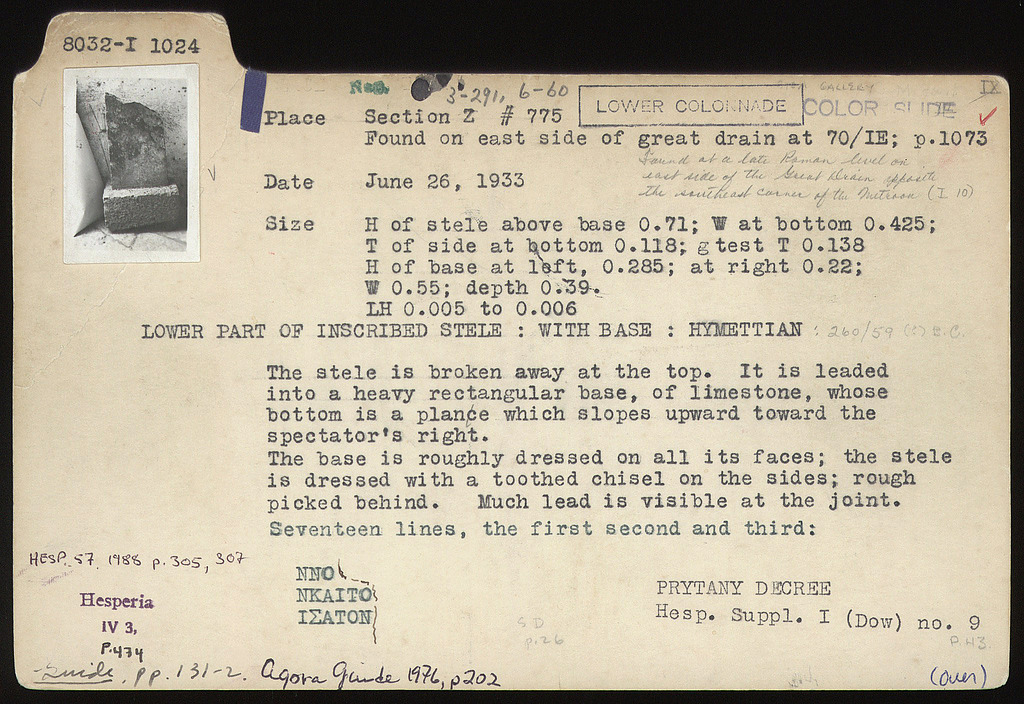 8032-I 1024
Neg. 3-291, 6-60
GALLERY
IX
LOWER COLONNADE
COLOR SLIDE
Place Section Z # 775
Found on east side of great drain at 70/IE; p.1073
Found at a late Roman level on
east side of the Great Drain opposite
the southeast corner of the Metroon (I 10)
Date June 26, 1933
Size H of stele above base 0.71; W at bottom 0.425;
T of side at bottom 0.118; gtest T 0.138
H of base at left, 0.285; at right 0.22;
W 0.55; depth 0.39.
LH 0.005 to 0.006
LOWER PART OF INSCRIBED STELE : WITH BASE : HYMETTIAN : 260/59 (?) B.C.
The stele is broken away at the top. It is leaded
into a heavy rectangular base, of limestone, whose
bottom is a plance which slopes upward toward the
spectator's right.
The base is roughly dressed on all its faces; the stele
is dressed with a toothed chisel on the sides; rough
picked behind. Much lead is visible at the joint.
Seventeen lines, the first second and third:
ΝΝΟ
ΝΚΑΙΤΟ
ΙΣΑΤΟΝ
HESP. 57, 1988 p. 305, 307
Hesperia
IV 3,
P.474
PRYTANY DECREE
Hesp. Suppl. I (Dow) no. 9
SD
p.26
P.43.
Guide, pp. 131-2. Agora Guide 1976, p202
(over)